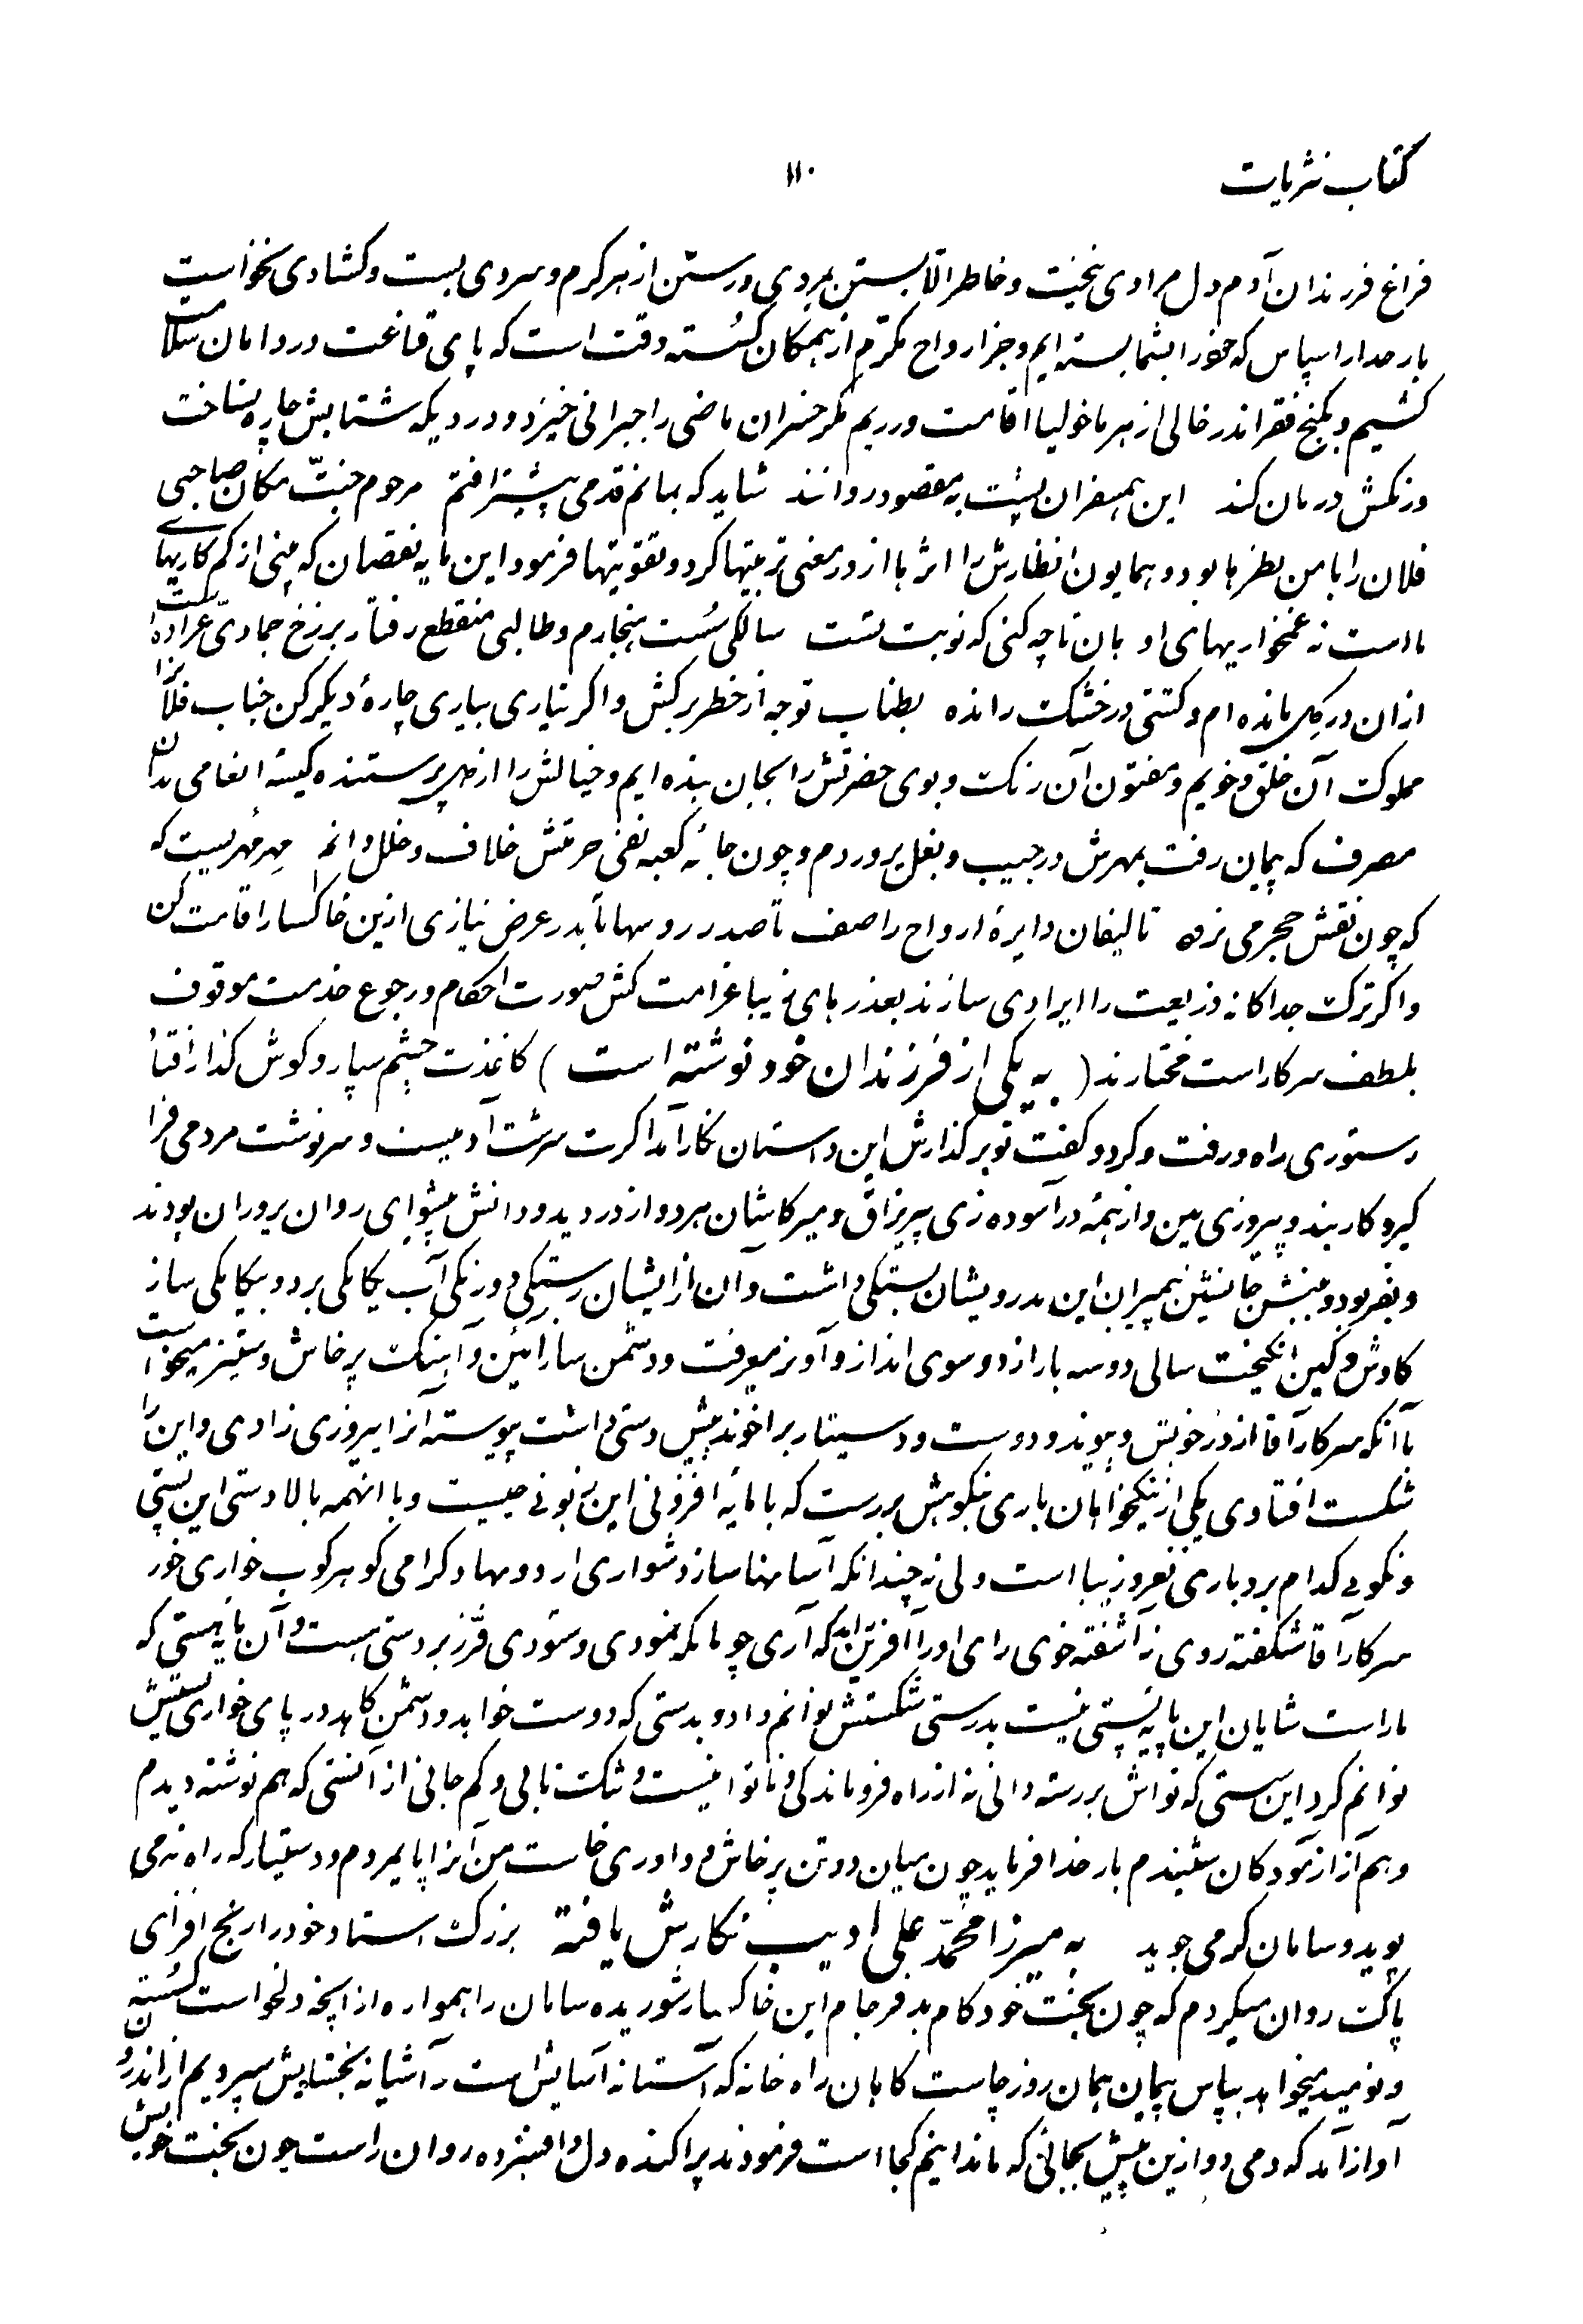 کتاب نثریات
۱۱۰
فراغ فرزندان آدم دل مرادی نجنبت و خاطر الا بستن بمردی و رستن از هر گرم و سردی بست و گشادی نخواست
بار خدا را سپاس که خود را بشما بسته ایم و جز ارواح مکرم از همگان گسسته وقت است که پای قناعت در دامان سلامت
کشیم و بکنج فقر اندر خالی از هر ماخولیا اقامت ورزیم مگر خسران ماضی را جبرانی خیزد و درد یکه شتابش چاره نساخت
درنگش درمان کند این همسفران پشت به مقصود روانند شاید که بمانم قدمی پیشتر افتم مرحوم جنت مکان صاحبی
فلان را با من نظرها بود و همایون انظارش را اثرها از در معنی تربیتها کرد و تقویتها فرمود این مایه نقصان که بینی از کم کاریهای
ما است نه غمخواریهای او بان تا چه کنی که نوبت تست سالکی سست هنجارم و طالبی منقطع رفتار برزخ جمادیت عراده
ازان در گل مانده ام و کشتی در خشک رانده بطناب توجه از خطر برکش و اگر نیاری بیاری چاره دیگر کن جناب فلانرا
مملوک آن خلق و خویم و مفتون آن رنگ و بوی حضرتش را بجان بنده ایم و خیالش را از دل پرستنده کیسه انعامی بدان
مصرف که پیمان رفت بمهرش در جیب و بغل پروردم و چون جامه کعبه نقض حرمتش خلاف و خلل دانم مهر مهریست که
که چون نقش حجر می نرود تالیفان دایره ارواح را صف تا صدر روسها تا بدر عرض نیازی ازین خاکسار اقامت کن
و اگر ترک جداگانه ذریعت را ایرادی سازند بعذرهای زیبا غرامت کش صورت احکام و رجوع خدمت موقوف
بلطف سرکار است مختارند ( به یکی از فرزندان خود نوشته است ) کاغذت چشم سپار و گوش گذار افتاد
دستوری راه و رفت و کرد و گفت تو بر گذارش این داستان نگار آمد اگرت سرشت آدمیست و سرنوشت مردمی فرا
گیر و کار بند و پیروزی بین و از همه در آسوده زی پیر نراق و میر کاشان هر دو از در دید و دانش پیشوای روان پروران بودند
و بفر بود و بینش جانشین پیمبران این بدرویشان بستگی داشت و آن از ایشان رستگی دورنگی آب یکانگی برد و بیگانگی ساز
کاوش و کین انگیخت سالی دو سه بار از دو سوی انداز و آویز میرفت و دشمن ساز آئین و آهنگ پرخاش و ستیز میخواست
با آنکه سرکار آقا از در خویش و پیوند و دوست و دستیار بر آخوند پیش دستی داشت پیوسته آنرا پیروزی زادی و این را
شکست افتادی یکی از نیکخواهان باری بنکوهش بررست که با مایه افزونی این زبونی چیست و با اینهمه بالا دستی این پستی
و نکویی کدام بردباری نغز و زیبا است ولی نه چندانکه آسانها ساز دشواری ارد و مهاد گرامی گوهر کوب خواری خورد
سرکار آقا شکفته روی نز آشفته خوی رای او را آفرین راند که آری چو مایکه نمودی و ستودی فر زبردستی هست و آن پایه هستی که
ماراست شایان این پایه پستی نیست بدرستی شکستش توانم داد و بدستی که دوست خواهد و دشمن کاهد در پای خواری پستش
توانم کرد این سستی که تواش بررسته دانی نه از راه فروماندگی و ناتوانیست و تنک بالی و کم جانی از انستی که هم نوشته دیدم
و هم از آزمودگان شنیدم بار خدا فرماید چون میان دو تن پرخاش و داوری خاست من آنرا پایمردم و دستیار که راه نرمی
پوید و سامان گرمی جوید به میرزا محمد علی ادیب نگارش یافته بزرگ استاد خود را رنج افزای
پاک روان میگردم که چون بخت خودکام بد فرجام این خاکسار شوریده سامان را همواره از انچه دلخواست گسسته
و نومید میخواهد بپاس پیمان همان روز چاست گاهان راه خانه که آستانه آسایش است و آشیانه بخشایش سپردیم از اندرون
آواز آمد که دمی دو ازین پیش بجائی که ما ندانیم کجا است فرمودند پراکنده دل و افسرده روان راست چون بخت خویش